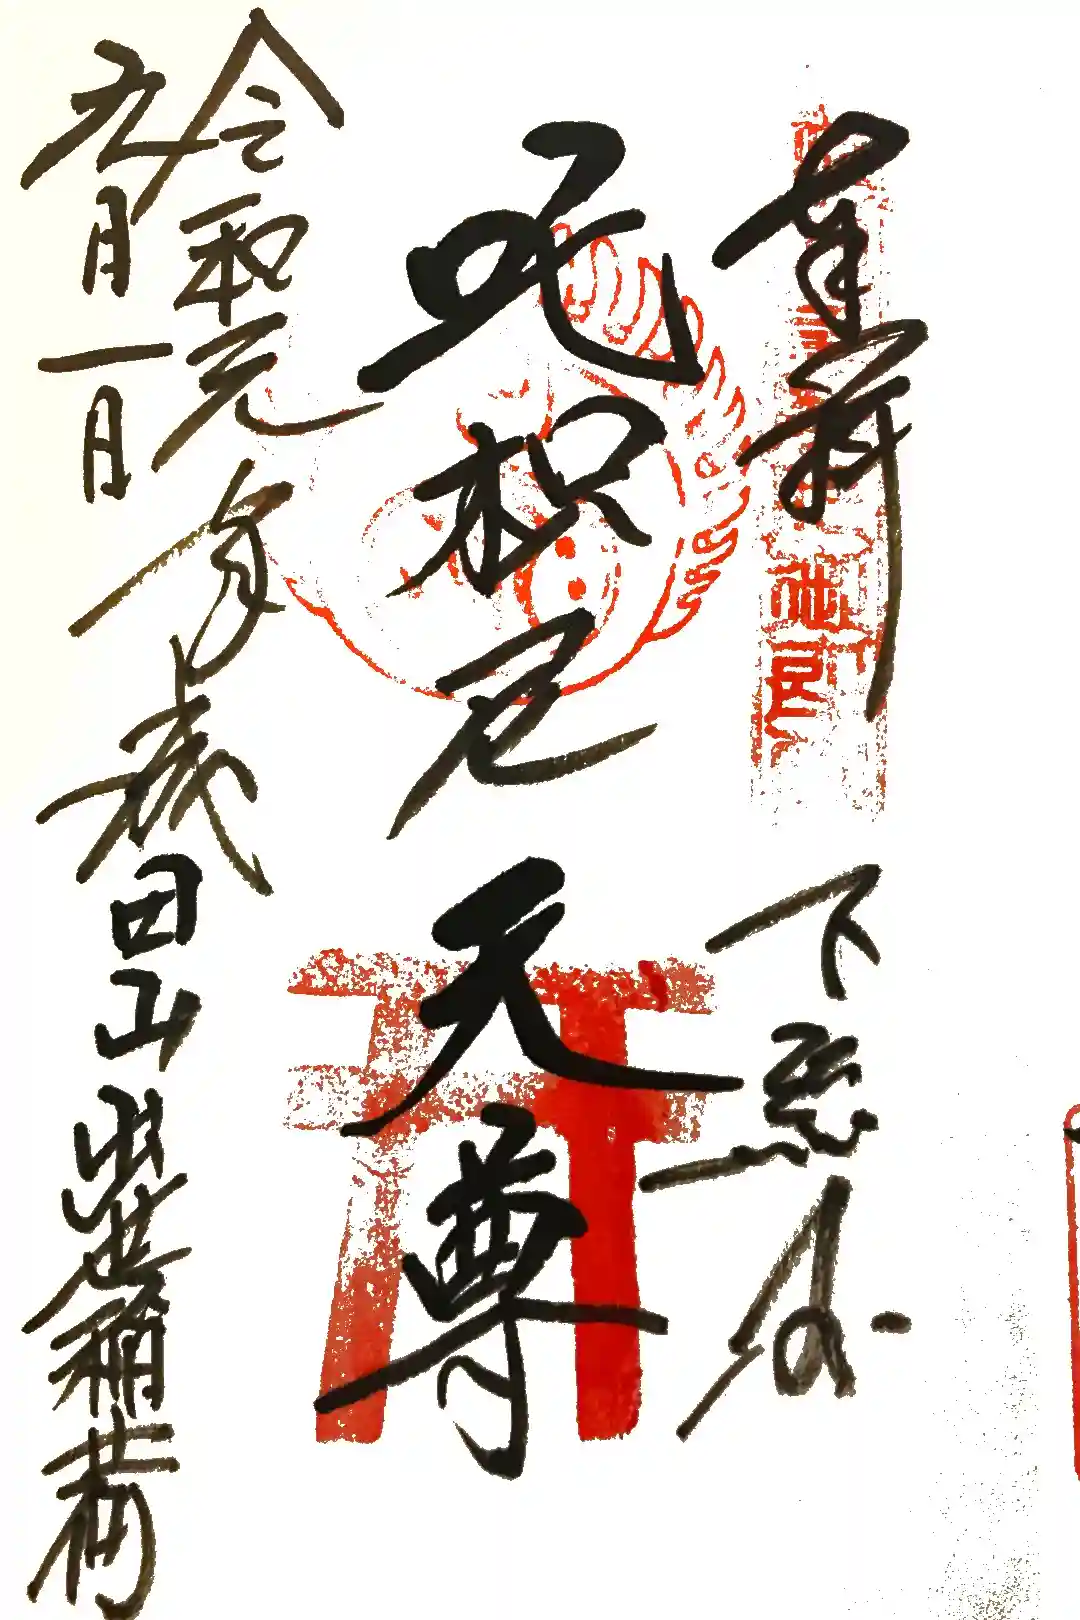 奉拝 下総
吒枳尼天尊
令和元年 成田山出世稲荷
九月一日